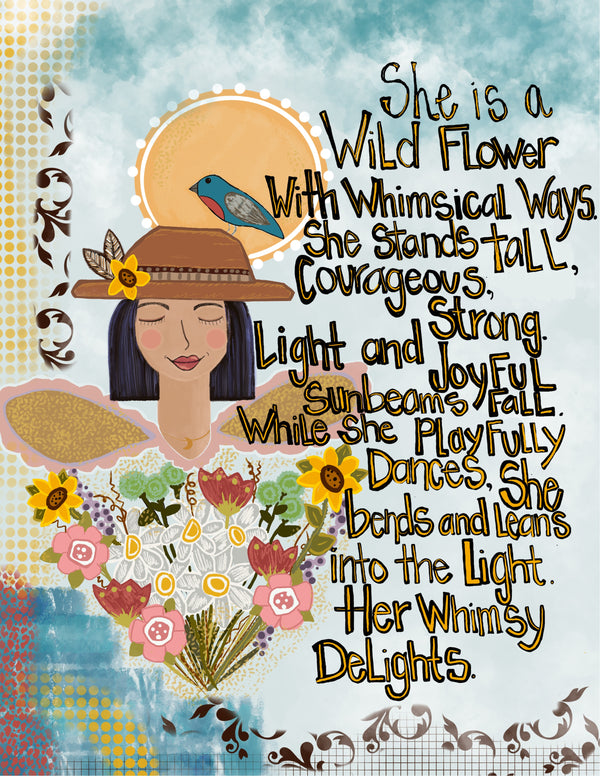 She is a
Wild Flower
With Whimsical Ways.
She Stands tall,
Courageous,
Strong.
Light and Joyful
Sunbeams Fall.
While She Playfully
Dances, She
bends and leans
into the Light.
Her Whimsy
Delights.